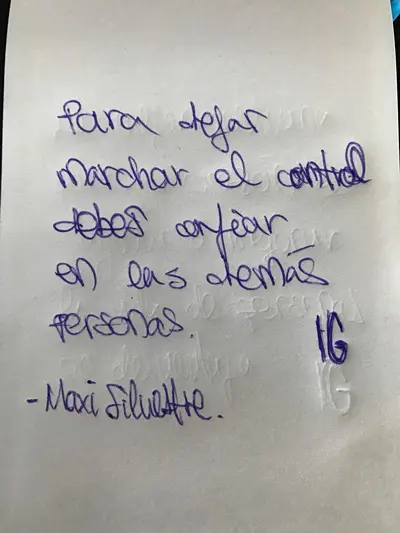 Para dejar
marchar el control
debes confiar
en las demás
personas.
IG
-Maxi Silvestre.